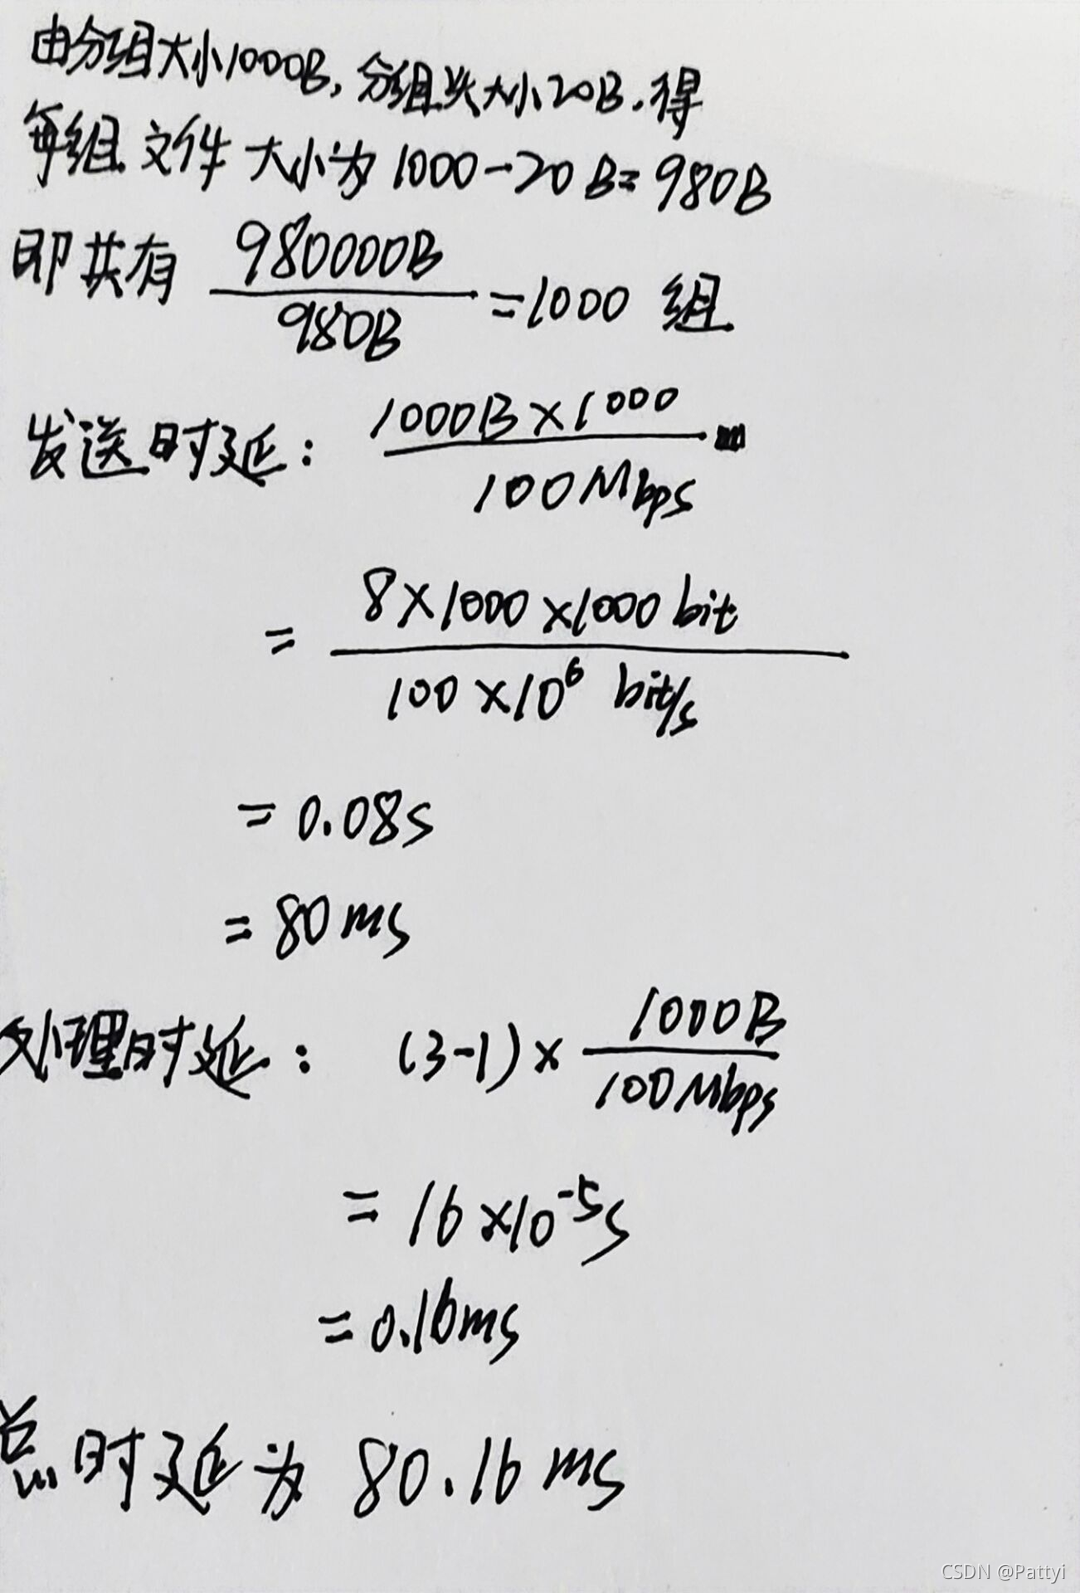 由分组大小1000B,分组头大小20B.得
每组文件大小为1000-20B=980B
即共有 980000B/980B =1000 组
发送时延: 1000B×1000/100Mbps
= 8×1000×1000bit/100×10⁶ bit/s
= 0.08s
= 80ms
处理时延: (3-1)× 1000B/100Mbps
= 16×10⁻⁵s
= 0.16ms
总时延为 80.16ms
CSDN @Pattyi